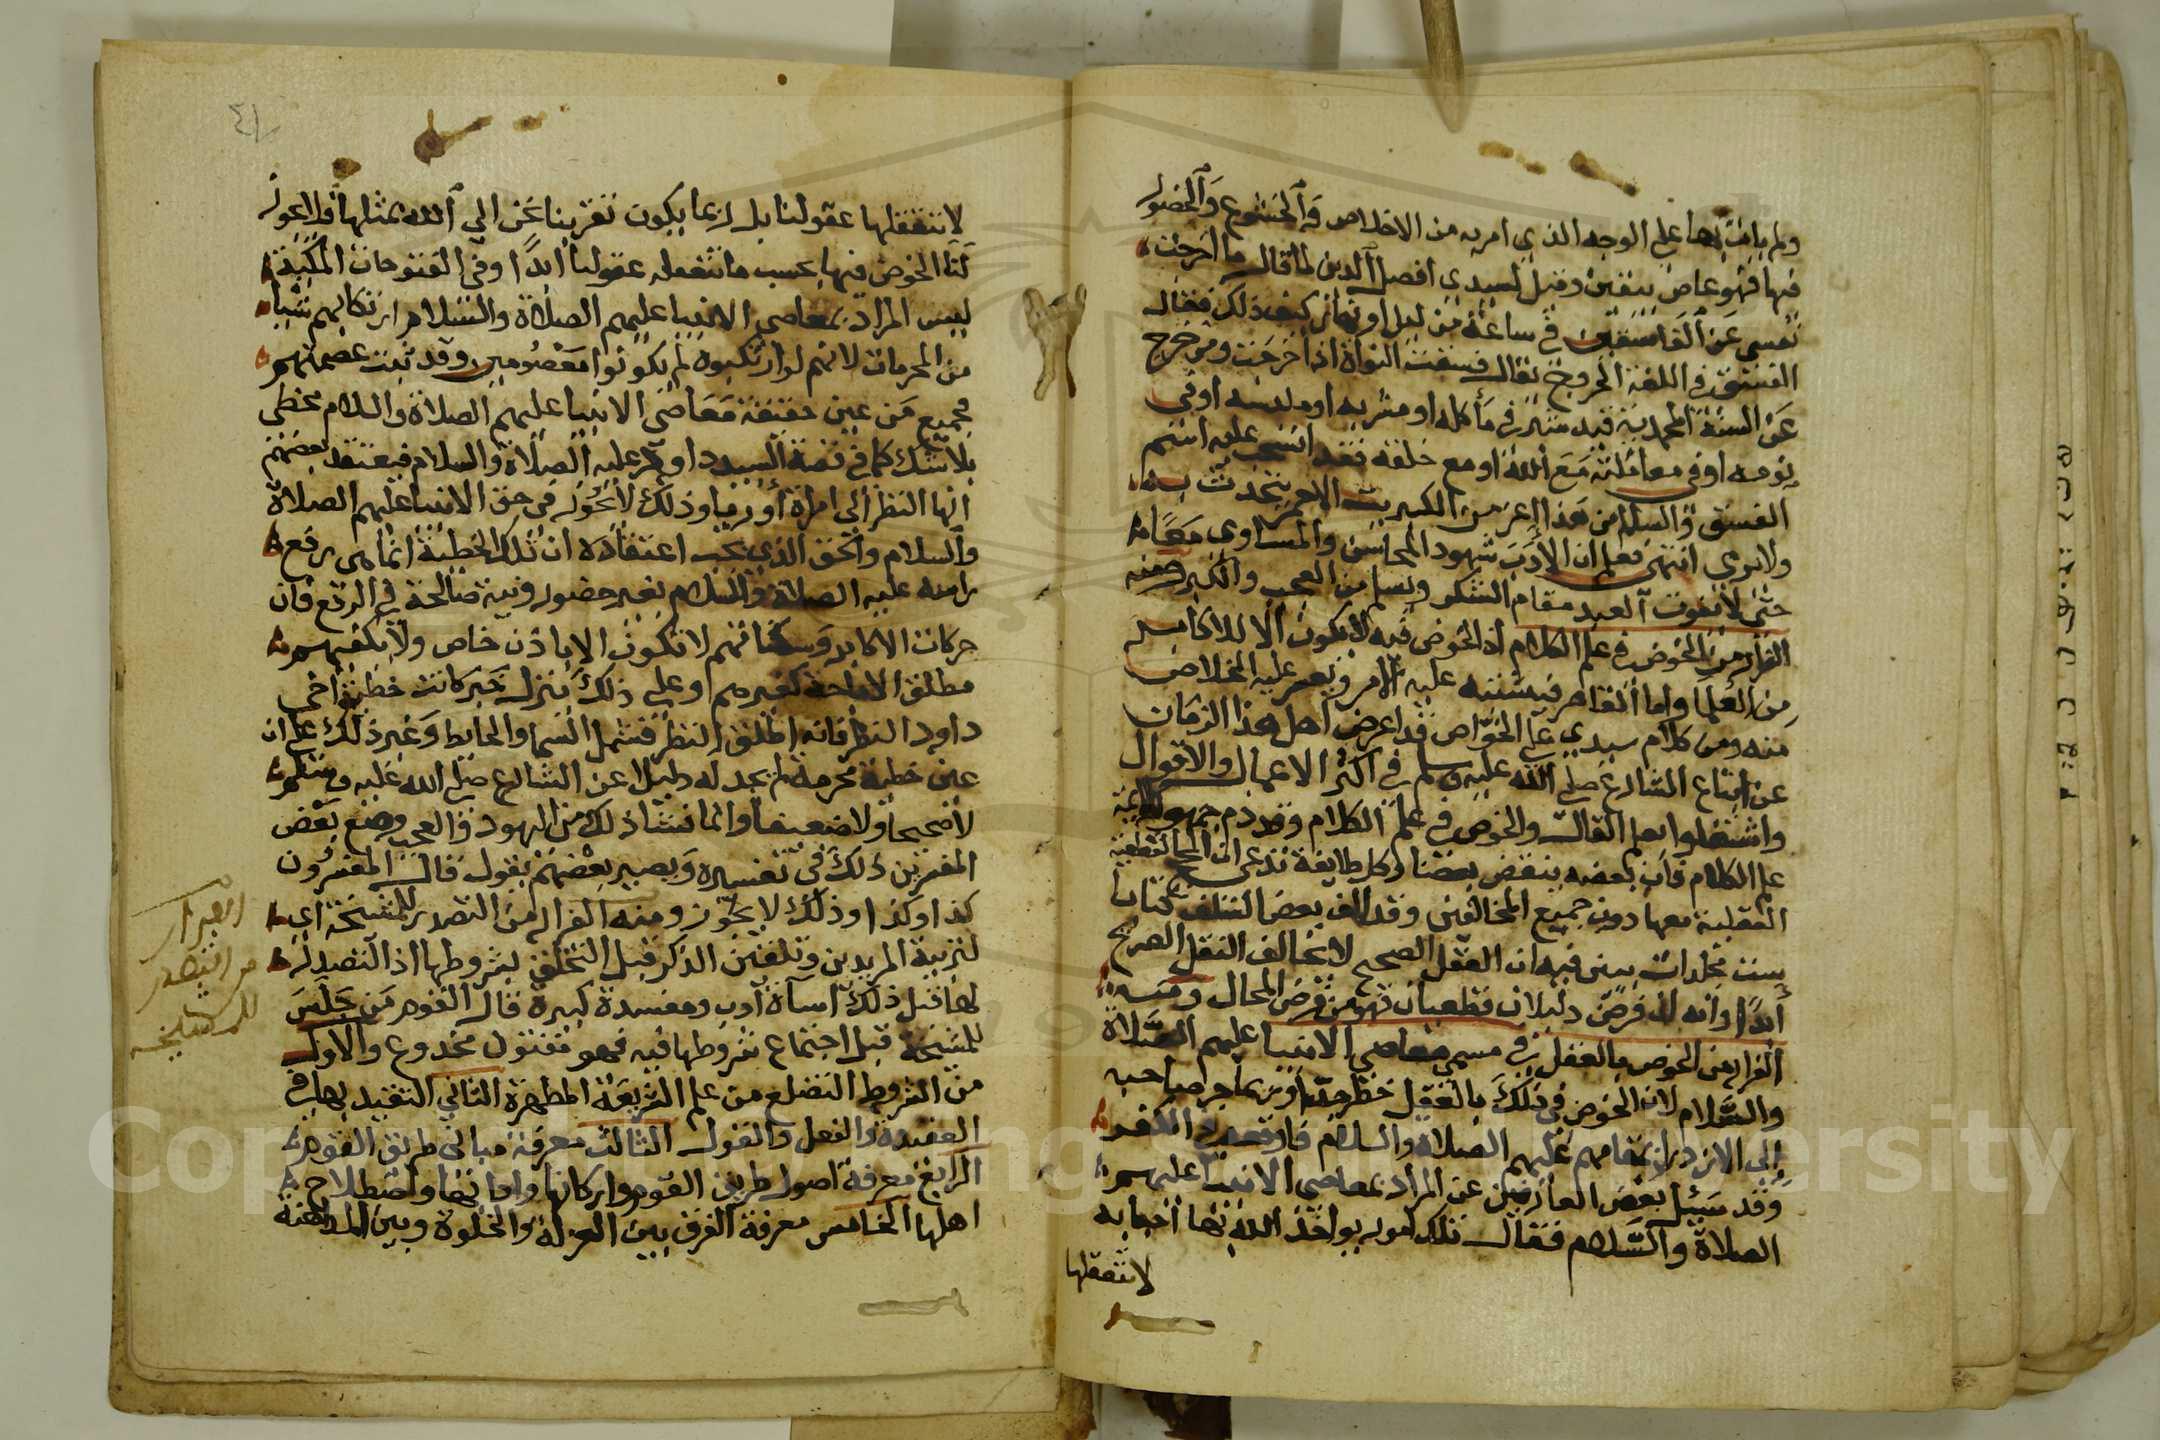 ولم يات بها على الوجه الذي امر به من الاخلاص والخشوع والحضور
فيها فهو عاص بيقين وقيل لسيدي افضل الدين لما قال ما اخرجت
نفسي عن الفاسقين في ساعة من ليل او نهار كيف ذلك فقال
الفسق في اللغة الخروج يقال فسقت النواة اذا خرجت ومن خرج
عن السنة المحمدية قيد شبر في مأكله او مشربه او ملبسه او في
نومه او في معاملته مع الله او مع خلقه فقد انسحب عليه اسم
الفسق والسلامن هذا اعز من الكبريت الاحمر يتحدث به
ولا يرى انتهى فعلم ان الادب شهود المحاسن والمساوي معا
حتى لا يفوت العبد مقام الشكر ويسلم من العجب والكبر ومنه
الفرار من الخوض في علم الكلام اذ الخوض فيه لا يكون الا للاكابر
من العلما واما القاصر فيشتبه عليه الامر ويعسر عليه الخلاص
منه ومن كلام سيدي علي الخواص قد اعرض اهل هذا الزمان
عن اتباع الشارع صلى الله عليه وسلم في اكثر الاعمال والاقوال
واشتغلوا بعلم القال والخوض في علم الكلام وقد ذم جمهور الائمة
علم الكلام فان بعضه ينقض بعضا وكل طايفة تدعى ان الحج القطعية
العقلية معها دون جميع المخالفين وقد الف بعض السلف كتابا
ست مجلدات يبين فيه ان العقل الصحيح لا يخالف النقل الصريح
أبدا وانه ان فرض دليلان قطعيان فهو من فرض المحال ومنه
الفرار من الخوض بالعقل في مسمى معاصي الانبيا عليهم الصلاة
والسلام لان الخوض في ذلك بالعقل خطر جدا وربما جر صاحبه
الى الازدرا بمقامهم عليهم الصلاة والسلام فاوقعه في الكفر
وقد سئل بعض العارفين عن المراد بمعاصي الانبيا عليهم
الصلاة والسلام فقال تلك امور يواخذ الله بها احبابه
لا تتعقلها
٤١
لا تتعقلها عقولنا بل ربما يكون تقربنا نحن الى الله بمثلها فلا يجوز
لنا الخوض فيها بحسب ما تتعقله عقولنا ابدا وفي الفتوحات المكية
ليس المراد بمعاصي الانبيا عليهم الصلاة والسلام ارتكابهم شيا
من المحرمات لانهم لو ارتكبوه لم يكونوا معصومين وقد ثبت عصمتهم
فجميع من عين حقيقة معاصي الانبيا عليهم الصلاة والسلام مخطي
بلا شك كما في قصة السيد داود عليه الصلاة والسلام فيعتقد بعضهم
انها النظر الى امراة أوريا وذلك لا يجوز في حق الانبيا عليهم الصلاة
والسلام والحق الذي يجب اعتقاده ان تلك الخطية انما هى رفع
راسه عليه الصلاة والسلام بغير حضور ونية صالحة في الرفع فان
حركات الاكابر وسكناتهم لا تكون الا باذن خاص ولا يكفيهم
مطلق الاباحة كغيرهم وعلى ذلك ينزل خبر كانت خطية اخى
داود النظر فانه اطلق النظر فشمل السما والحايط وغير ذلك على ان
عين خطية محرمة لم يجد له دليلا عن الشارع صلى الله عليه وسلم
لا صحيحا ولا ضعيفا وانما نشا ذلك من اليهود والعجب وضع بعض
المفسرين ذلك في تفسيره ويصير بعضهم يقول قال المفسرون
كذا وكذا وذلك لا يجوز ومنه الفرار من التصدر للمشيخة اي
لتربية المريدين وتلقين الذكر قبل التخلق بشروطها اذ التصدر
لها قبل ذلك اساة أدب ومفسدة كبيرة قال القوم من جلس
للمشيخة قبل اجتماع شروطها فيه فهو مفتون مخدوع والاول
من الشروط التضلع من علم الشريعة المطهرة الثاني التقيد بها في
العقيدة والفعل والقول الثالث معرفة مباني طريق القوم
الرابع معرفة اصول طريق القوم واركانها وادابها واصطلاح
اهلها الخامس معرفة الفرق بين العزلة والخلوة وبين المداهنة
الفرار
من التصدر
للمشيخه
Copyright © King Saud University